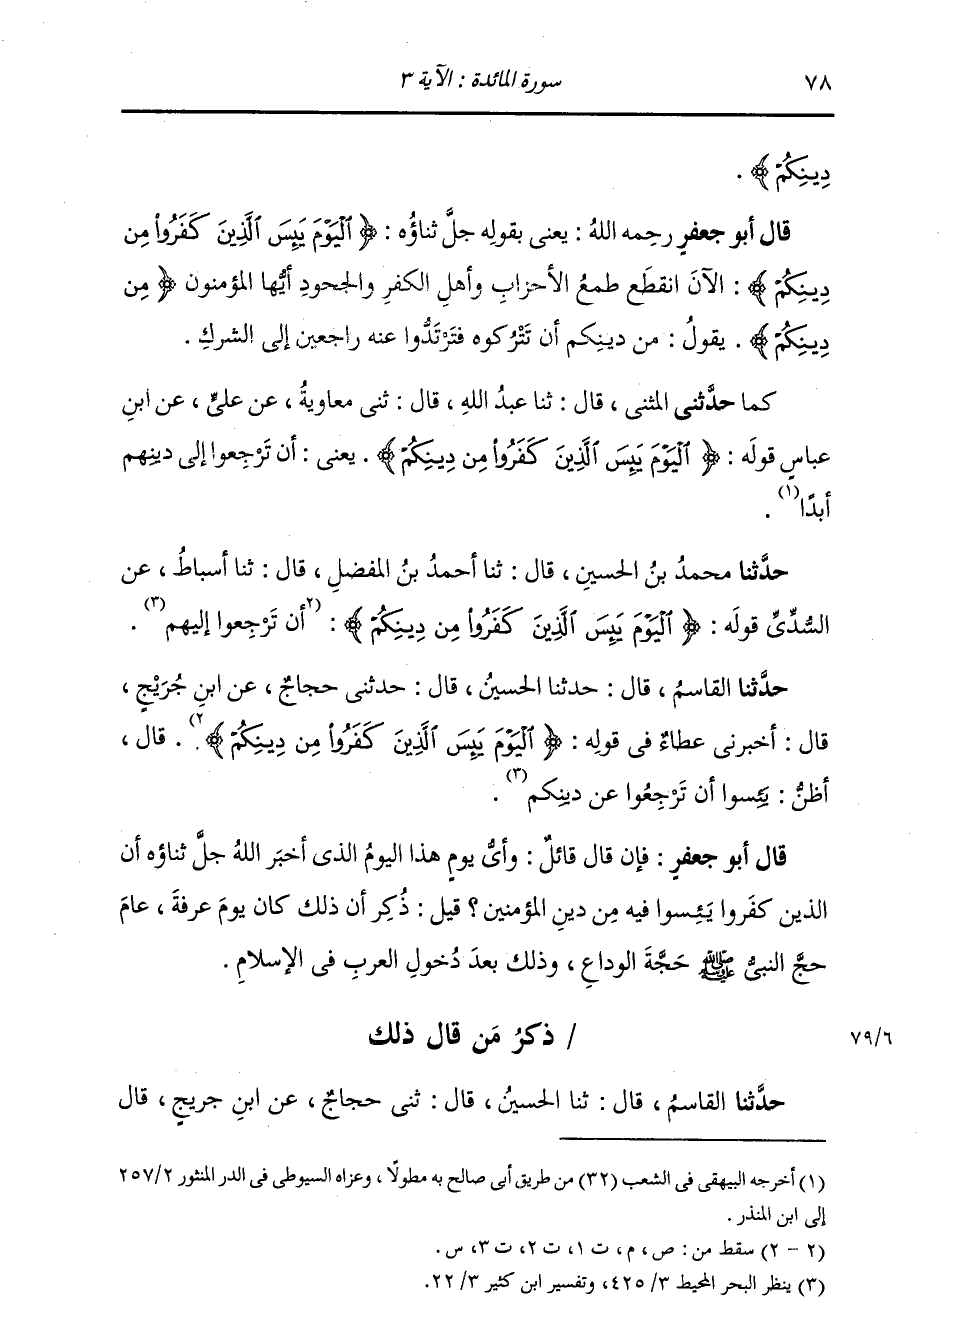 ٧٨ سورة المائدة : الآية ٣
دِينِكُمْ ﴾ .
قال أبو جعفرٍ رحِمه اللهُ : يعنى بقولِه جلَّ ثناؤُه : ﴿ ٱلْيَوْمَ يَئِسَ ٱلَّذِينَ كَفَرُوا۟ مِن
دِينِكُمْ ﴾ : الآنَ انقطَع طمعُ الأحزابِ وأهلِ الكفرِ والجحودِ أيُّها المؤمنون ﴿ مِن
دِينِكُمْ ﴾ . يقولُ : من دينِكم أن تَتْرُكوه فتَرْتَدُّوا عنه راجعين إلى الشركِ .
كما حدَّثنى المثنى ، قال : ثنا عبدُ اللهِ ، قال : ثنى معاويةُ ، عن علىٍّ ، عن ابنِ
عباسٍ قولَه : ﴿ ٱلْيَوْمَ يَئِسَ ٱلَّذِينَ كَفَرُوا۟ مِن دِينِكُمْ ﴾ . يعنى : أن تَرْجِعوا إلى دينِهم
أبدًا(١) .
حدَّثنا محمدُ بنُ الحسينِ ، قال : ثنا أحمدُ بنُ المفضلِ ، قال : ثنا أسباطُ ، عن
السُّدِّىِّ قولَه : ﴿ ٱلْيَوْمَ يَئِسَ ٱلَّذِينَ كَفَرُوا۟ مِن دِينِكُمْ ﴾ : (٢أن تَرْجِعوا إليهم(٣) .
حدَّثنا القاسمُ ، قال : حدثنا الحسينُ ، قال : حدثنى حجاجٌ ، عن ابنِ جُرَيْجٍ ،
قال : أخبرنى عطاءٌ فى قولِه : ﴿ ٱلْيَوْمَ يَئِسَ ٱلَّذِينَ كَفَرُوا۟ مِن دِينِكُمْ ﴾٢) . قال ،
أظنُّ : يَئِسوا أن تَرْجِعُوا عن دينِكم(٣) .
قال أبو جعفرٍ : فإن قال قائلٌ : وأىُّ يومٍ هذا اليومُ الذى أخبَر اللهُ جلَّ ثناؤه أن
الذين كفَروا يَئِسوا فيه مِن دينِ المؤمنين ؟ قيل : ذُكِر أن ذلك كان يومَ عرفةَ ، عامَ
حجَّ النبىُّ ﷺ حَجَّةَ الوداعِ ، وذلك بعدَ دُخولِ العربِ فى الإسلامِ .
٧٩/٦ / ذكرُ مَن قال ذلك
حدَّثنا القاسمُ ، قال : ثنا الحسينُ ، قال : ثنى حجاجٌ ، عن ابنِ جريجٍ ، قال
(١) أخرجه البيهقى فى الشعب (٣٢) من طريق أبى صالح به مطولًا ، وعزاه السيوطى فى الدر المنثور ٢٥٧/٢
إلى ابن المنذر .
(٢ - ٢) سقط من : ص ، م ، ت ١، ت ٢، ت ٣، س .
(٣) ينظر البحر المحيط ٣/ ٤٢٥، وتفسير ابن كثير ٣/ ٢٢.